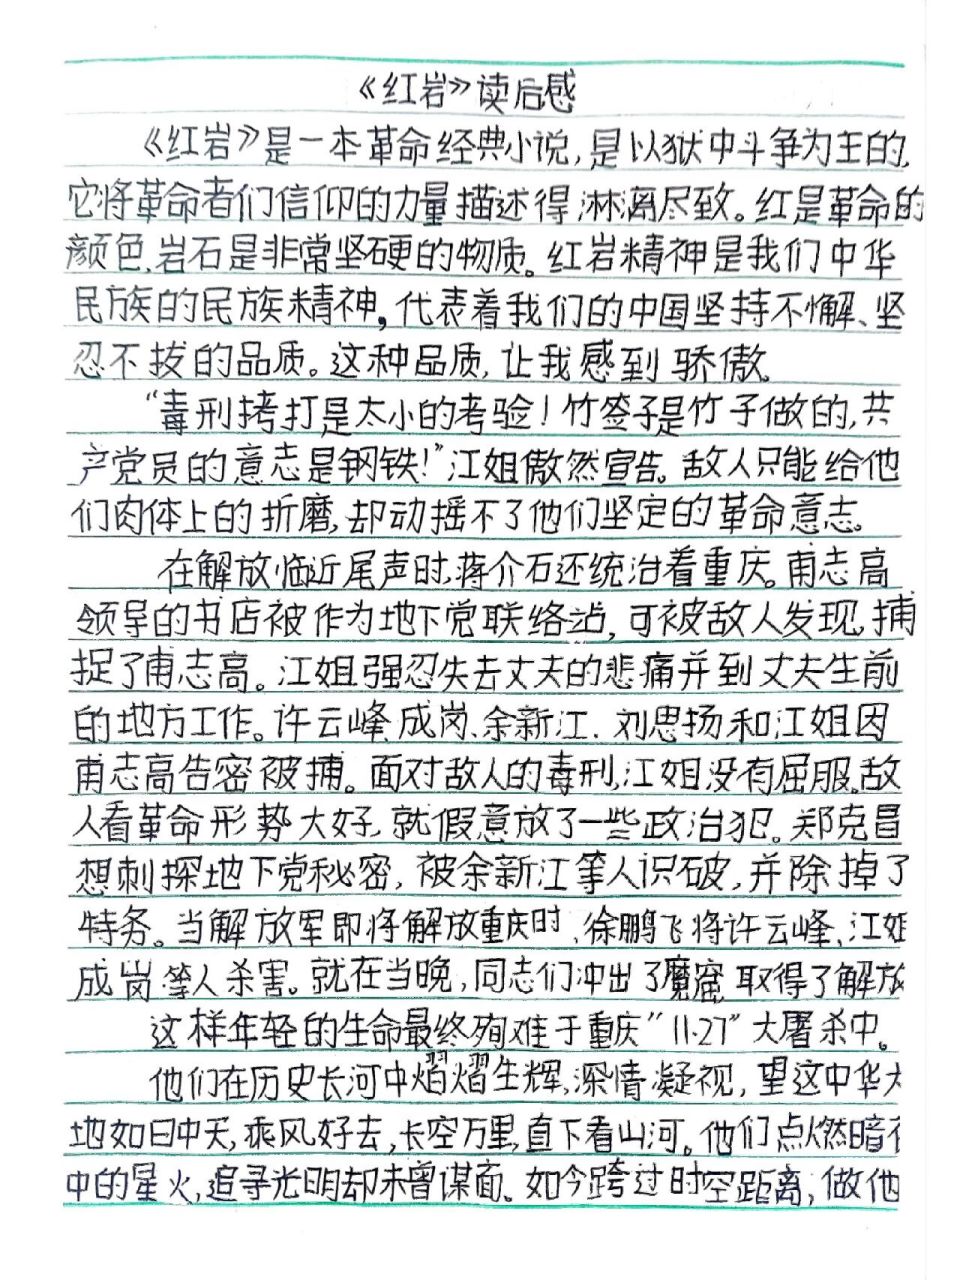 《红岩》读后感
《红岩》是一本革命经典小说,是以狱中斗争为主的,
它将革命者们信仰的力量描述得淋漓尽致。红是革命的
颜色,岩石是非常坚硬的物质。红岩精神是我们中华
民族的民族精神,代表着我们的中国坚持不懈、坚
忍不拔的品质。这种品质,让我感到骄傲。
“毒刑拷打是太小的考验!竹签子是竹子做的,共
产党员的意志是钢铁!”江姐傲然宣告。敌人只能给他
们肉体上的折磨,却动摇不了他们坚定的革命意志。
在解放临近尾声时,蒋介石还统治着重庆。甫志高
领导的书店被作为地下党联络站,可被敌人发现,捕
捉了甫志高。江姐强忍失去丈夫的悲痛并到丈夫生前
的地方工作。许云峰、成岗、余新江、刘思扬和江姐因
甫志高告密被捕。面对敌人的毒刑,江姐没有屈服。敌
人看革命形势大好,就假意放了一些政治犯。郑克昌
想刺探地下党秘密,被余新江等人识破,并除掉了
特务。当解放军即将解放重庆时,徐鹏飞将许云峰、江姐
成岗等人杀害。就在当晚,同志们冲出了魔窟,取得了解放
这样年轻的生命最终殉难于重庆“11·27”大屠杀中。
他们在历史长河中熠熠生辉,深情凝视,望这中华大
地如日中天,乘风好去,长空万里,直下看山河。他们点燃暗夜
中的星火,追寻光明却未曾谋面。如今跨过时空距离,做他